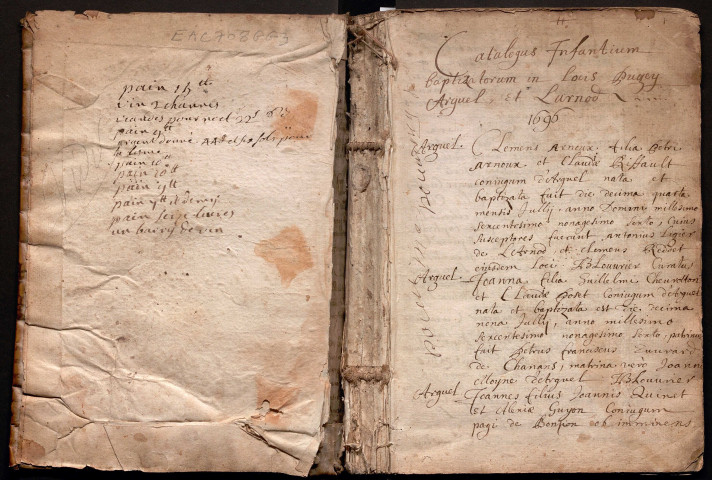 EAC708GG3
pain 15 tt
vin 2 chauves
viandes pour
pain 9tt
argent donné
la ferme
pain 10 tt
pain 10 tt
pain 9tt
pain 9tt & demy
pain seize livres
un baril de vin
Catalogus Infantium
baptizatorum in locis Pugey
Arguel, et Larnod
1696
Arguel Clemens Arnoux, filia Petri
Arnoux et Claudæ Riffault
coniugum d'Arguel nata et
baptizata fuit die decima quarta
mensis Jully, anno Domini millesimo
sexcentesimo nonagesimo sexto, cuius
susceptores fuerunt, antonius Ligier
de Larnod et Clemens Redot
eiusdem loci HB Louvrier Curatus
Arguel Joanna filia Guillelmi Chevrotton
et Claudæ Poset Coniugum d'Arguel
nata et baptizata est die decima
nona Jully, anno millesimo
sexcentesimo nonagesimo sexto, patrinus
fuit Petrus franciscus
de Chanans, matrina vero Joanna
Moyne d'Arguel HB Louvrier
Arguel Joannes filius Joannis Quinet
et Alexiæ Guyon Coniugum
pagi de ob imminens